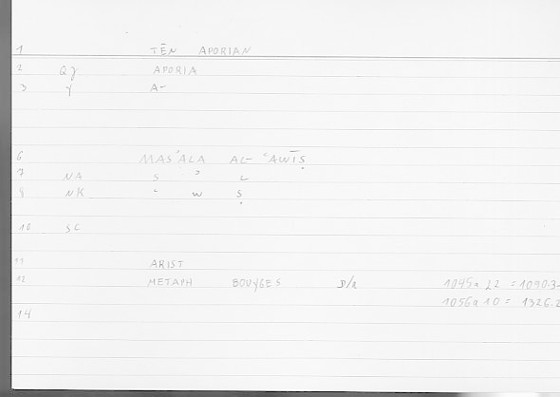 1 TĒN APORIAN
2 QZ APORIA
3 Y A-
6 MAS'ALA AL-ʿAWĪṢ
7 NA S ʾ L
8 NK ʿ W Ṣ
10 SC
11 ARIST
12 METAPH BOUYGES D/A 1045a 22 = 1090.3-
1056a 10 = 1326.2
14